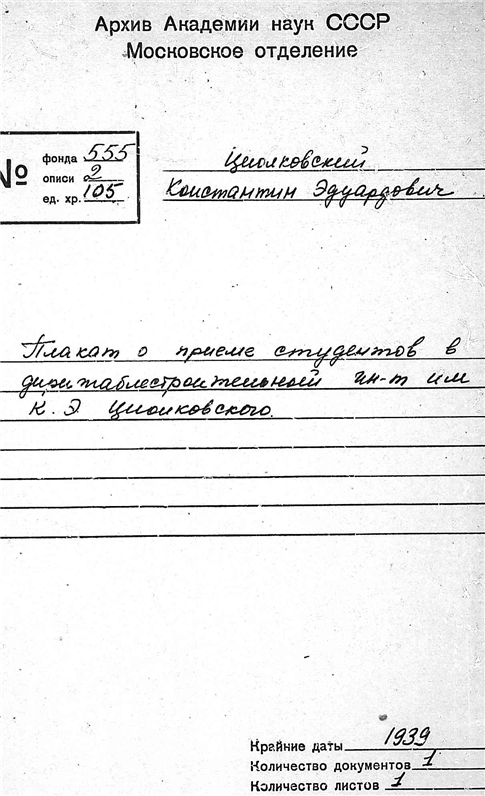 Архив Академии наук СССР
Московское отделение
№
фонда 555
описи 2
ед. хр. 105
Циолковский
Константин Эдуардович
Плакат о приеме студентов в
дирижаблестроительный ин-т им
К. Э Циолковского.
Крайние даты 1939
Количество документов 1
Количество листов 1